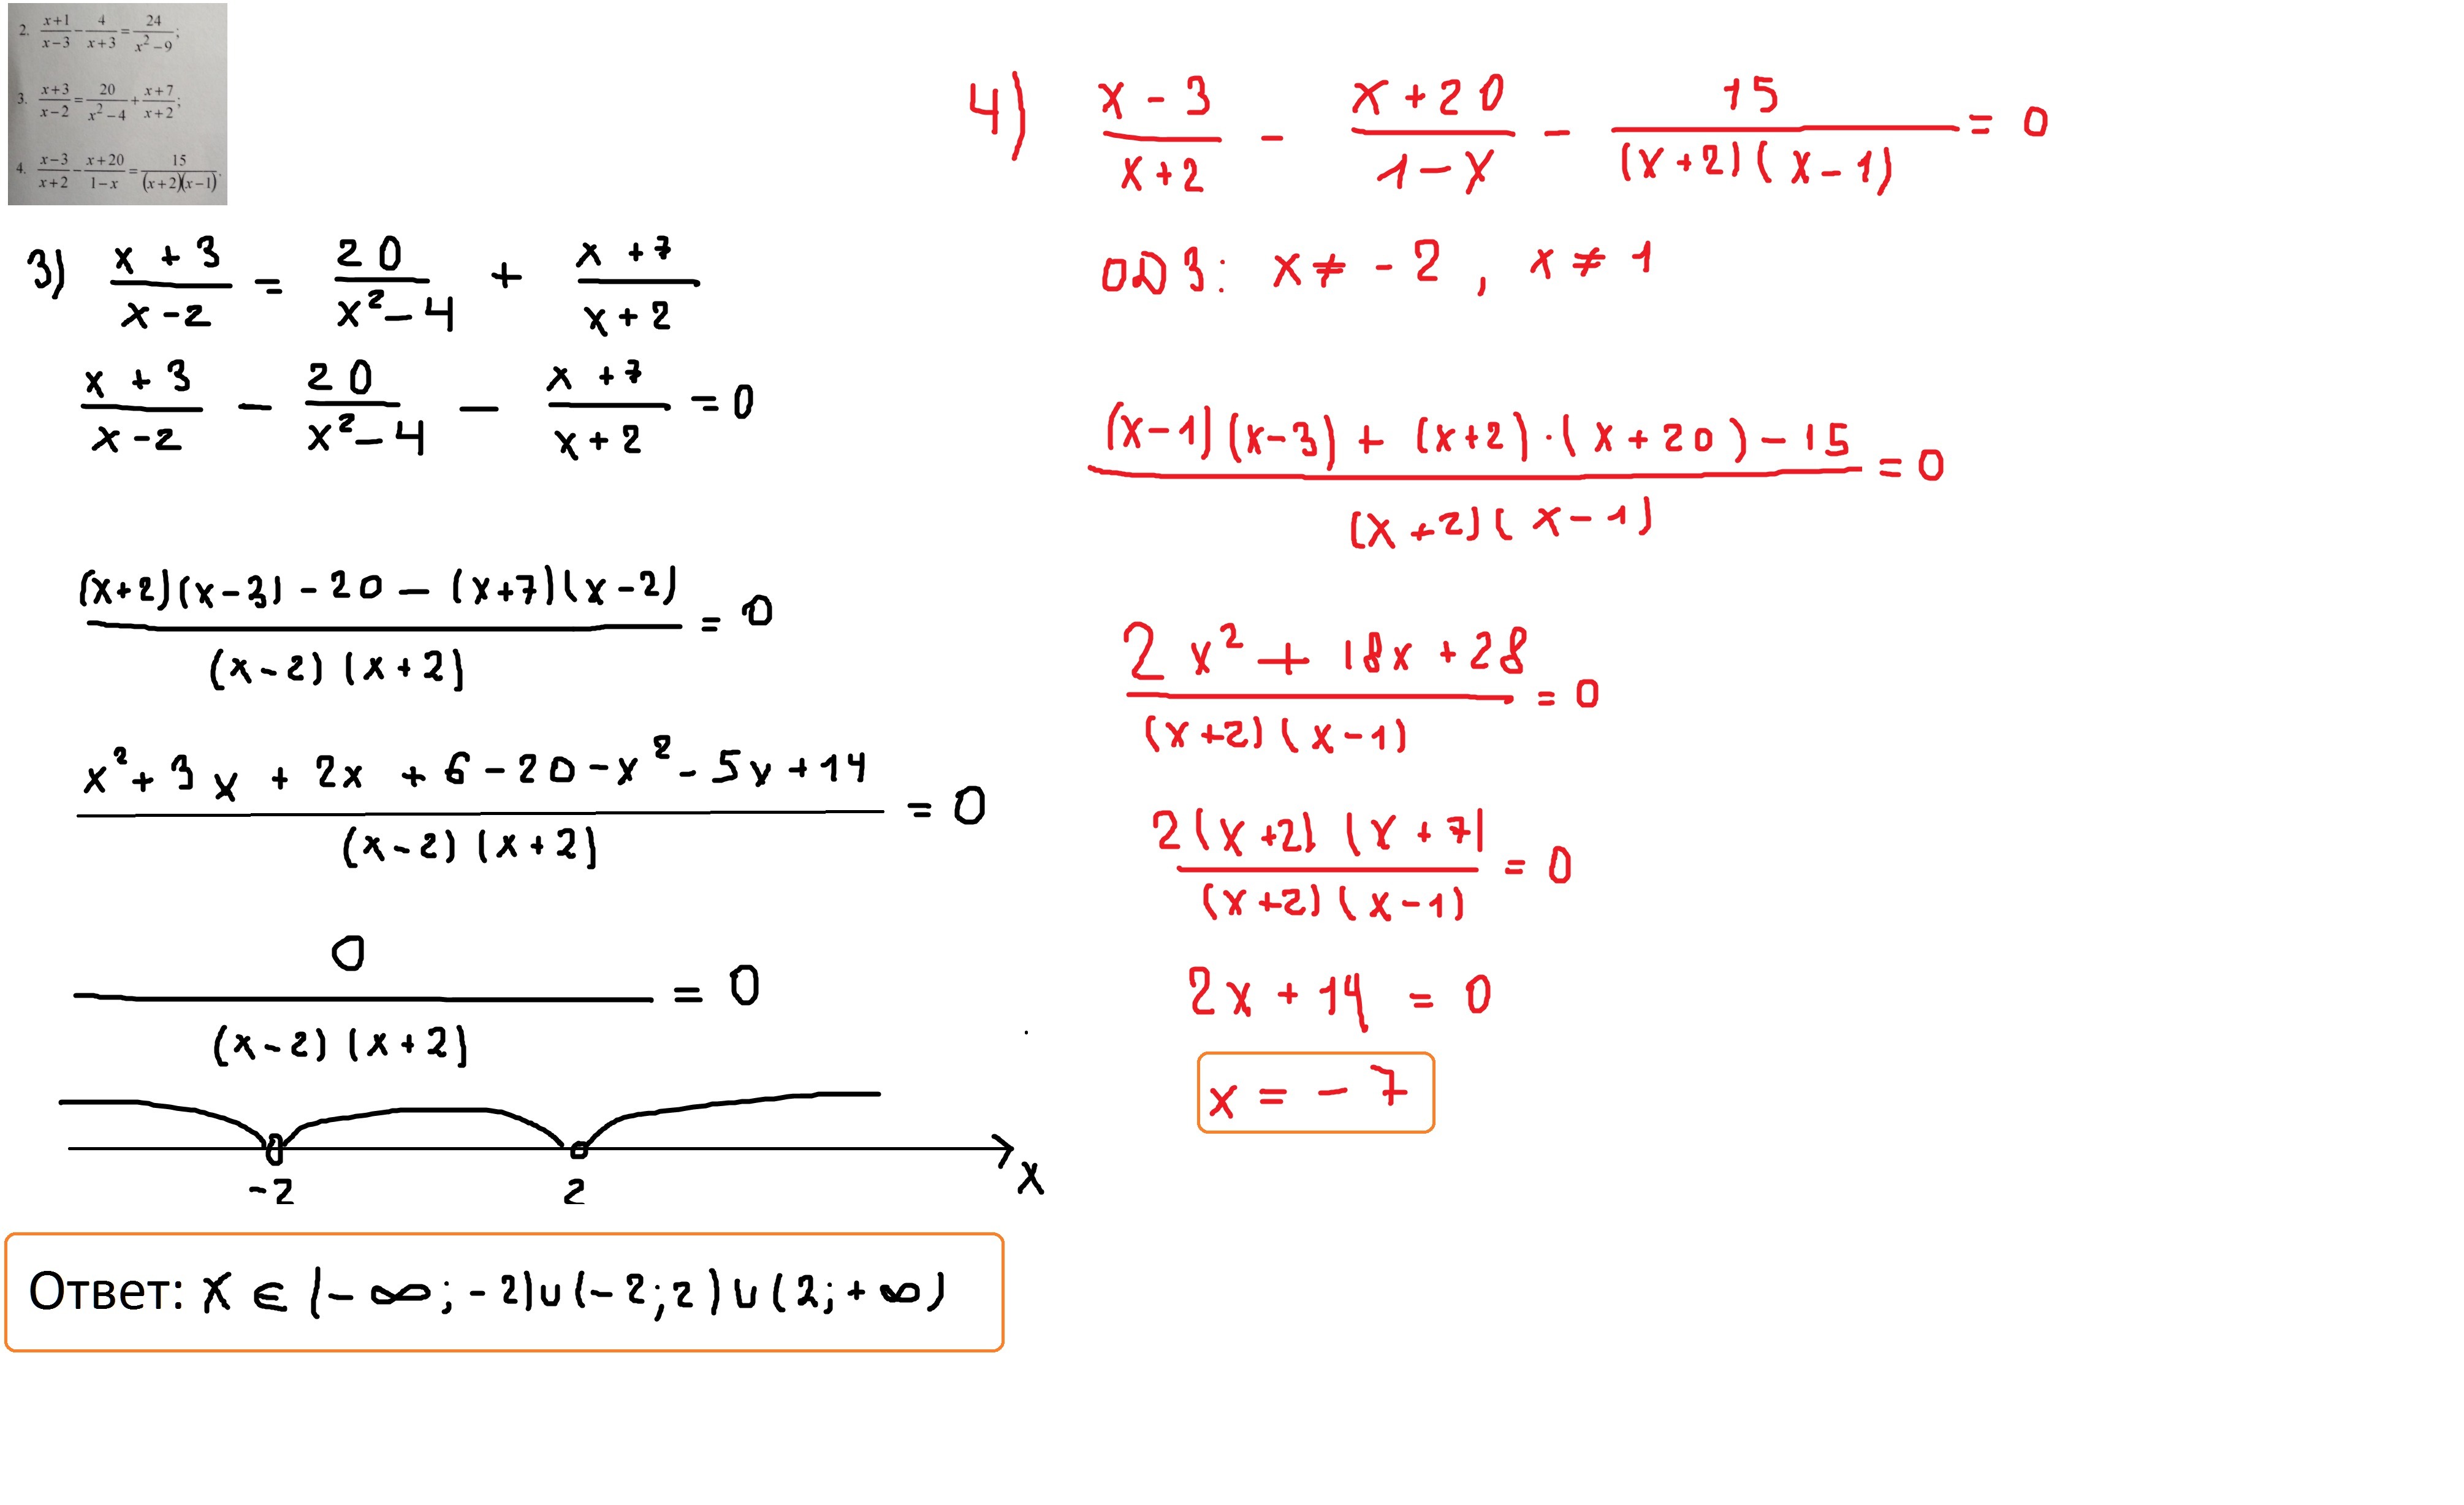 2. (x+1)/(x−3) − 4/(x+3) = 24/(x²−9);
3. (x+3)/(x−2) = 20/(x²−4) + (x+7)/(x+2);
4. (x−3)/(x+2) − (x+20)/(1−x) = 15/((x+2)(x−1)).
3) (x+3)/(x−2) = 20/(x²−4) + (x+7)/(x+2)
(x+3)/(x−2) − 20/(x²−4) − (x+7)/(x+2) = 0
((x+2)(x−3) − 20 − (x+7)(x−2))/((x−2)(x+2)) = 0
(x² + 3x + 2x + 6 − 20 − x² − 5y + 14)/((x−2)(x+2)) = 0
0/((x−2)(x+2)) = 0
-2 2 x
Ответ: x ∈ (−∞; −2) ∪ (−2; 2) ∪ (2; +∞)
4) (x−3)/(x+2) − (x+20)/(1−x) − 15/((x+2)(x−1)) = 0
ОДЗ: x ≠ −2, x ≠ 1
((x−1)(x−3) + (x+2)·(x+20) − 15)/((x+2)(x−1)) = 0
(2x² + 18x + 28)/((x+2)(x−1)) = 0
2(x+2)(x+7)/((x+2)(x−1)) = 0
2x + 14 = 0
x = − 7